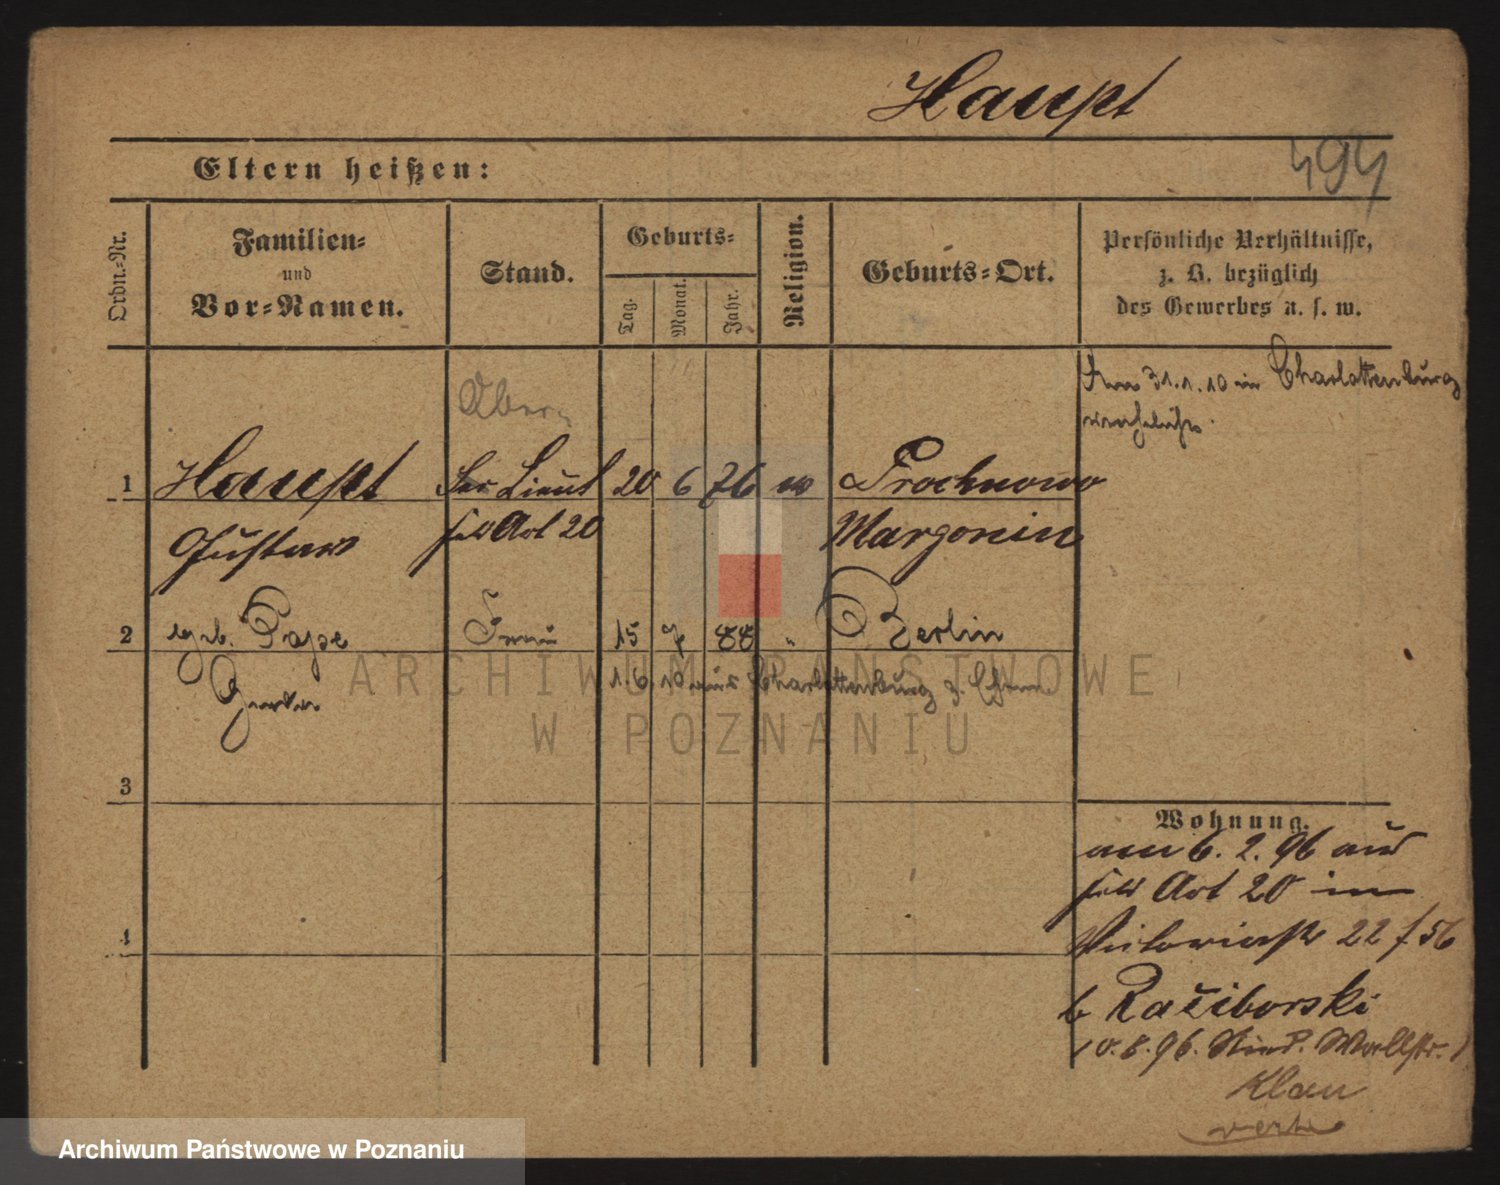 Haupt
494
Eltern heißen:
Ordn.-Nr.
Familien-
und
Vor-Namen.
Stand.
Geburts-
Tag.
Monat.
Jahr.
Religion.
Geburts-Ort.
Persönliche Verhältnisse,
z. B. bezüglich
des Gewerbes u. s. w.
Ober
Am 31.1.10 in Charlottenburg
verehelicht.
1 Haupt Sec Lieut 20 6 76 ev Prochnowo
Gustav Feld Art 20 Margonin
2 geb. Pape Frau 15 7 88 " Berlin
1.6.10 aus Charlottenburg z.
3
4
Wohnung.
am 6.2.96 aus
Feld Art 20 in
Victoriastr 22 / 56
b Raciborski
10.8.96. Wallstr. 1
Klau
verte
ARCHIWUM PAŃSTWOWE
W POZNANIU
Archiwum Państwowe w Poznaniu